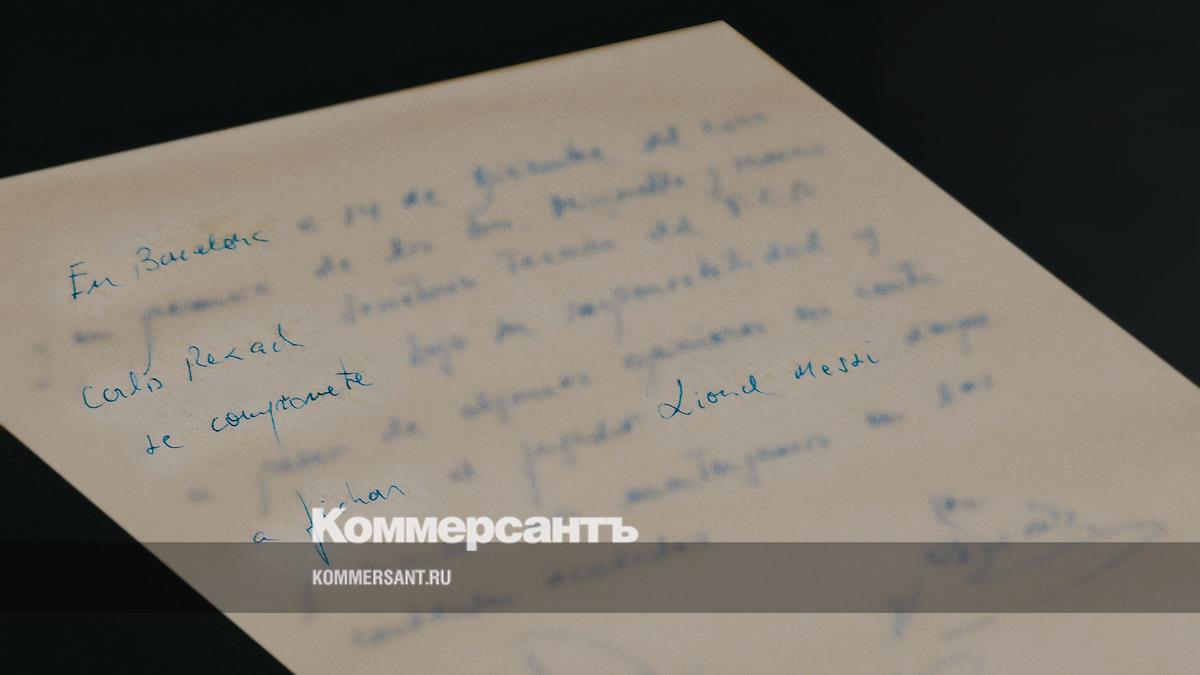 En Barcelona a 14 de diciembre del
en presencia de los Minguella y Horacio
Carles Rexach Secretario Tecnico del F.C.B
se compromete bajo su responsabilidad y
a pesar de algunas opiniones en contra
a fichar al jugador Lionel Messi siempre
mantengamos en las
cantidades acordadas
Коммерсантъ
KOMMERSANT.RU